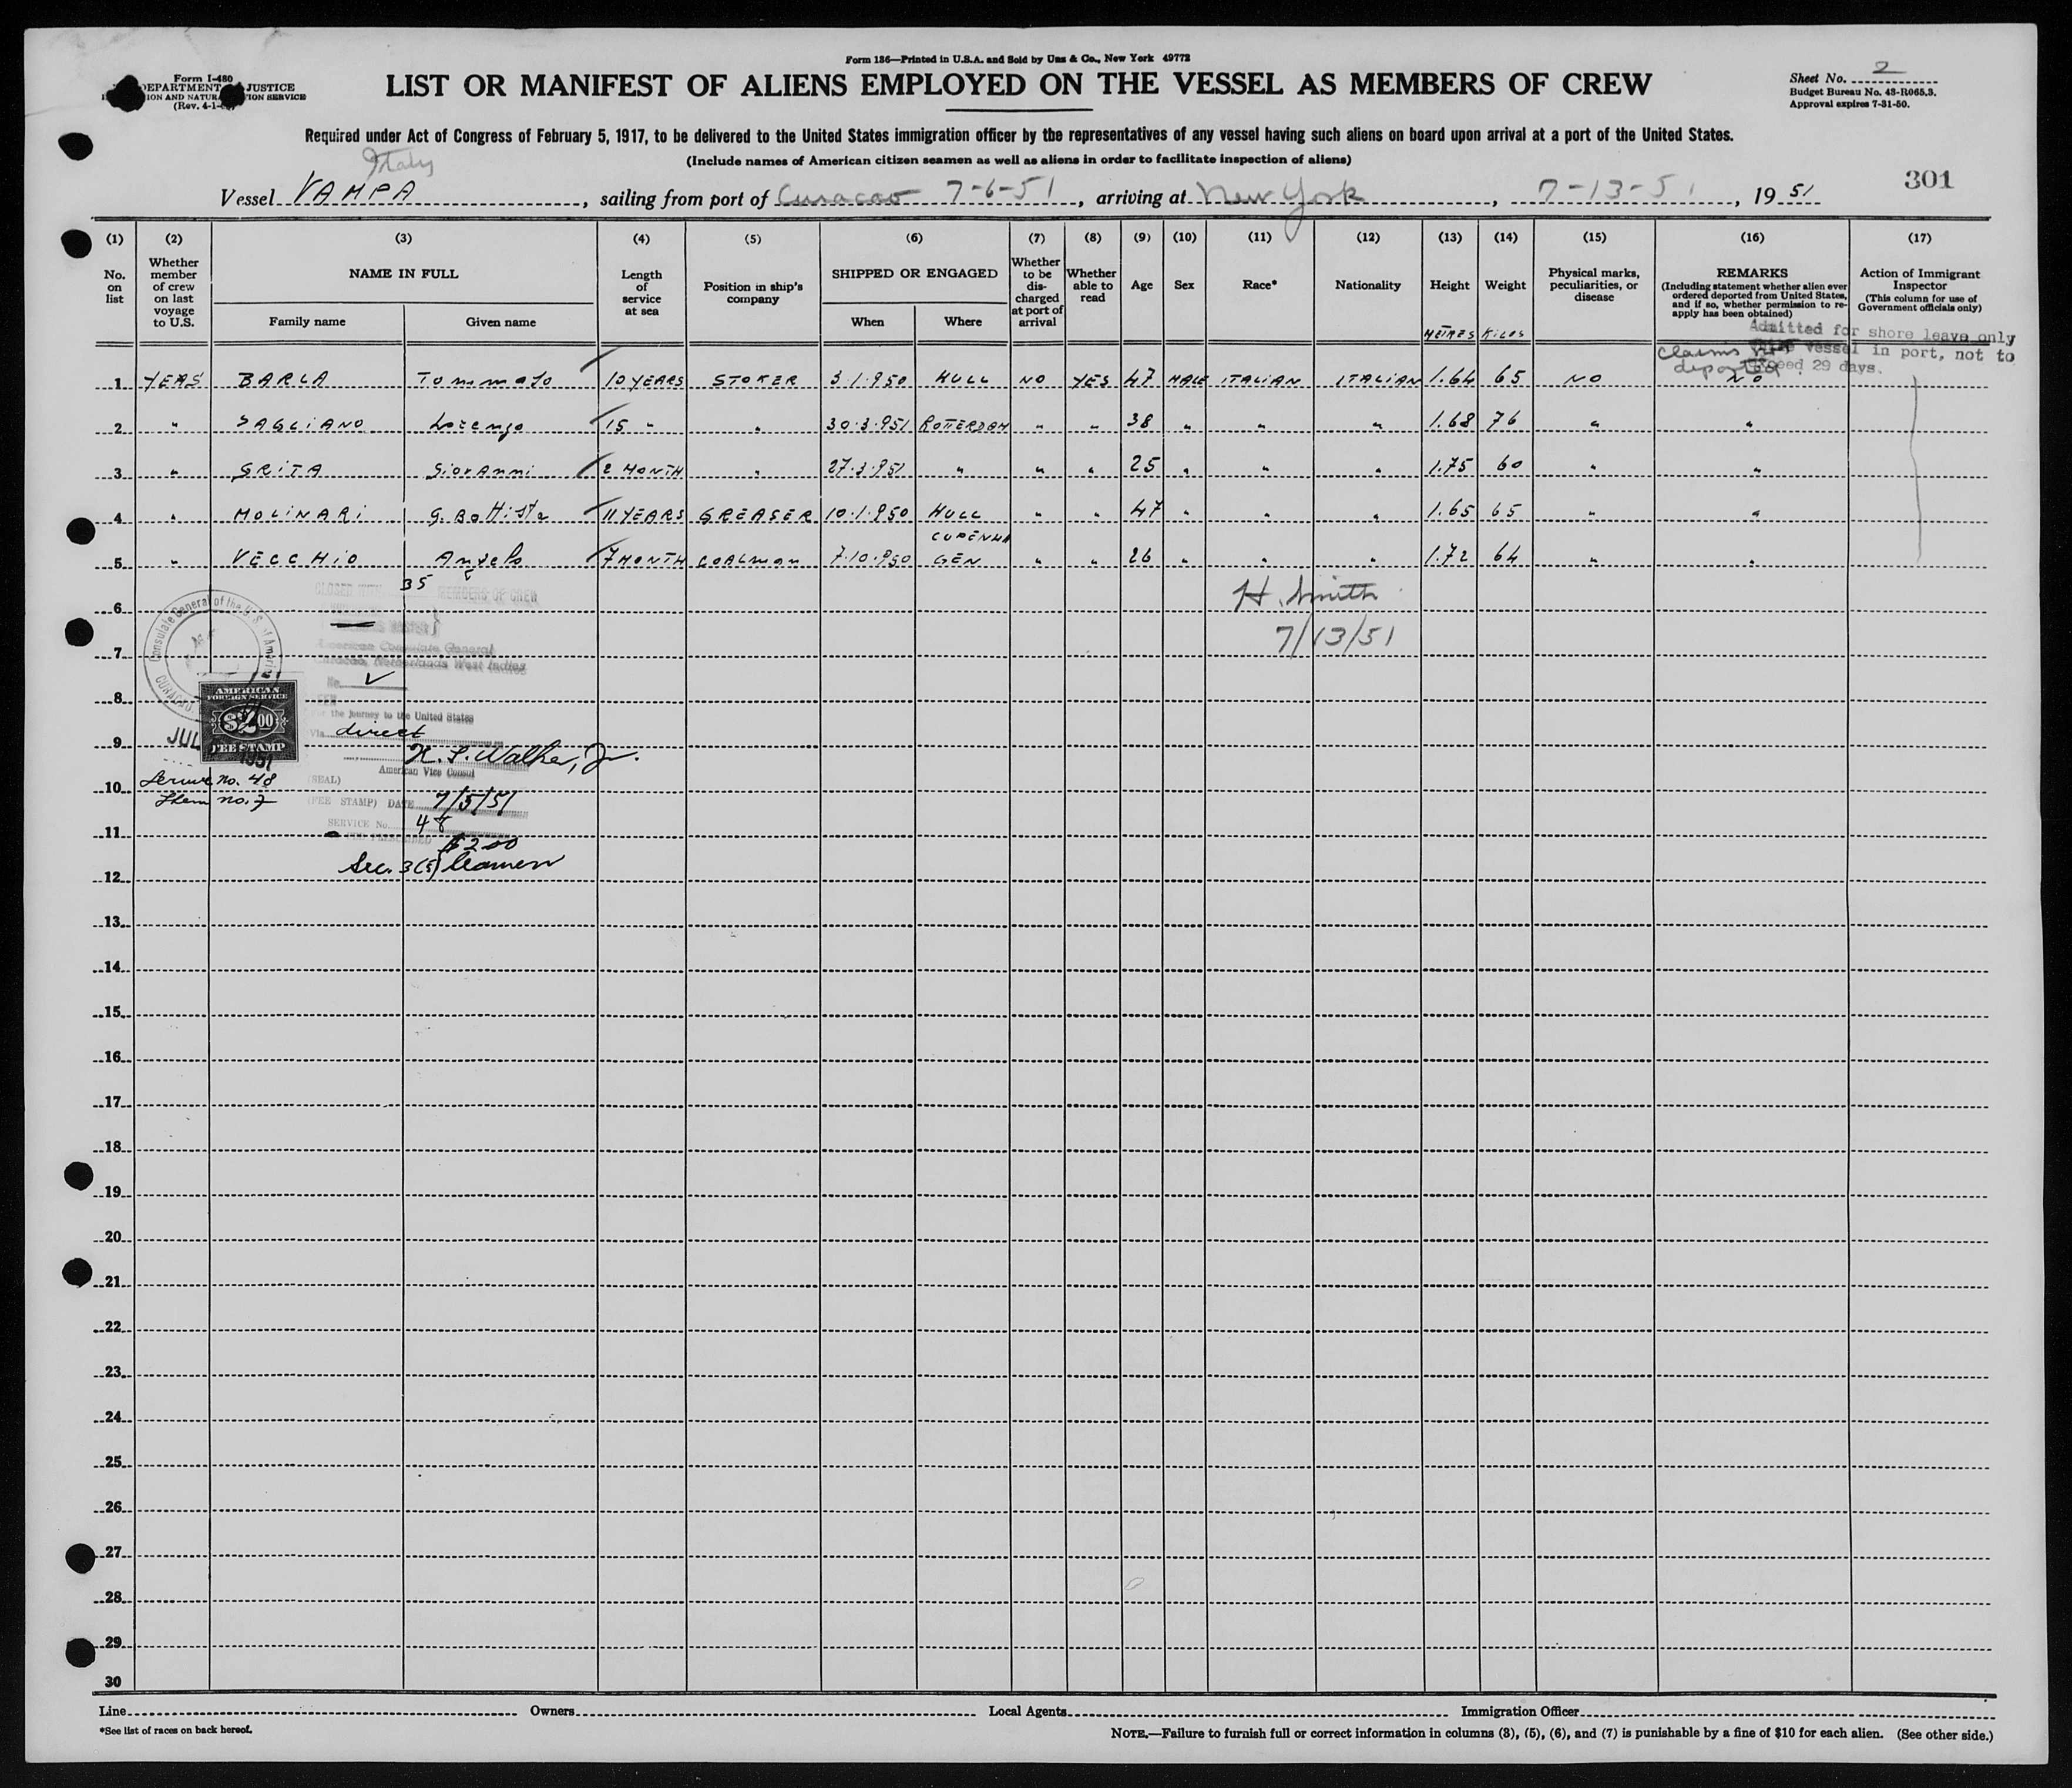 Form I-480
DEPARTMENT JUSTICE
(Rev. 4-1-
Form 136—Printed in U.S.A. and Sold by Unz & Co., New York 49772
LIST OR MANIFEST OF ALIENS EMPLOYED ON THE VESSEL AS MEMBERS OF CREW
Sheet No. 2
Budget Bureau No. 43-R065.3.
Approval expires 7-31-50.
Required under Act of Congress of February 5, 1917, to be delivered to the United States immigration officer by the representatives of any vessel having such aliens on board upon arrival at a port of the United States.
(Include names of American citizen seamen as well as aliens in order to facilitate inspection of aliens)
Italy
301
Vessel VAMPA, sailing from port of Curacao 7-6-51, arriving at New York, 7-13-51, 19 51
(1) (2) (3) (4) (5) (6) (7) (8) (9) (10) (11) (12) (13) (14) (15) (16) (17)
No. on list
Whether member of crew on last voyage to U.S.
NAME IN FULL
Family name Given name
Length of service at sea
Position in ship's company
SHIPPED OR ENGAGED
When Where
Whether to be discharged at port of arrival
Whether able to read
Age
Sex
Race*
Nationality
Height
METRES
Weight
KILOS
Physical marks, peculiarities, or disease
REMARKS
(Including statement whether alien ever ordered deported from United States, and if so, whether permission to re-apply has been obtained)
Action of Immigrant Inspector
(This column for use of Government officials only)
Admitted for shore leave only
vessel in port, not to
exceed 29 days.
claims
deported
1 YEAS BARLA Tommaso 10 YEARS STOKER 3.1.950 HULL NO YES 47 MALE ITALIAN ITALIAN 1.64 65 NO NO
2 " SAGLIANO Lorenzo 15 " " 30.3.951 ROTTERDAM " " 38 " " " 1.68 76 " "
3 " GRITA Giovanni 2 MONTH " 27.3.951 " " " 25 " " " 1.75 60 " "
4 " MOLINARI G. Battista 11 YEARS GREASER 10.1.950 HULL " " 47 " " " 1.65 65 " "
5 " VECCHIO Angelo 7 MONTH COALman 7.10.950 COPENHAGEN " " 26 " " " 1.72 64 " "
35 MEMBERS OF CREW
H. Smith
7/13/51
6
7
8
9
10
11
12
13
14
15
16
17
18
19
20
21
22
23
24
25
26
27
28
29
30
Consulate General of the U.S. of America
CURACAO
American Consulate General
Curacao, Netherlands West Indies
No.
AMERICAN
FOREIGN SERVICE
$2.00
FEE STAMP
JUL
1951
For the journey to the United States
Via direct
H. S. Walker, Jr.
American Vice Consul
Service no. 48
Item no. 7
(SEAL)
(FEE STAMP) DATE 7/5/51
SERVICE No. 48
$2.00
Sec. 3(5) Seamen
Line Owners Local Agents Immigration Officer
*See list of races on back hereof.
NOTE.—Failure to furnish full or correct information in columns (3), (5), (6), and (7) is punishable by a fine of $10 for each alien. (See other side.)